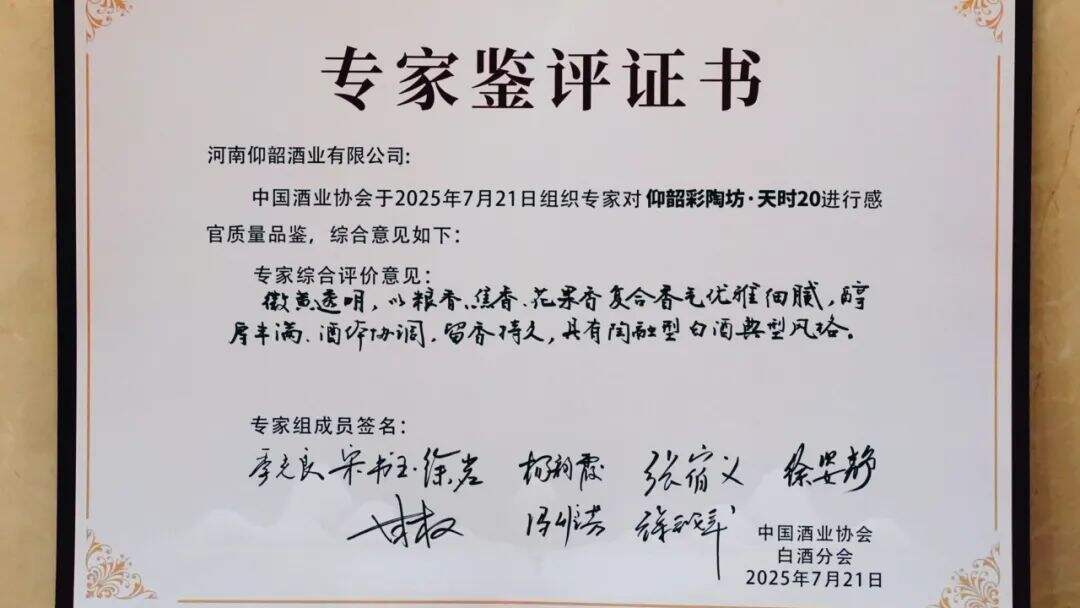 专家鉴评证书
河南仰韶酒业有限公司:
中国酒业协会于2025年7月21日组织专家对 仰韶彩陶坊·天时20进行感
官质量品鉴，综合意见如下：
专家综合评价意见：
微黄透明，以粮香、焦香、花果香复合香气优雅细腻，醇
厚丰满、酒体协调，留香持久，具有陶融型白酒典型风格。
专家组成员签名：
季克良 宋书玉 徐岩 张宿义 徐姿静
中国酒业协会
白酒分会
2025年7月21日